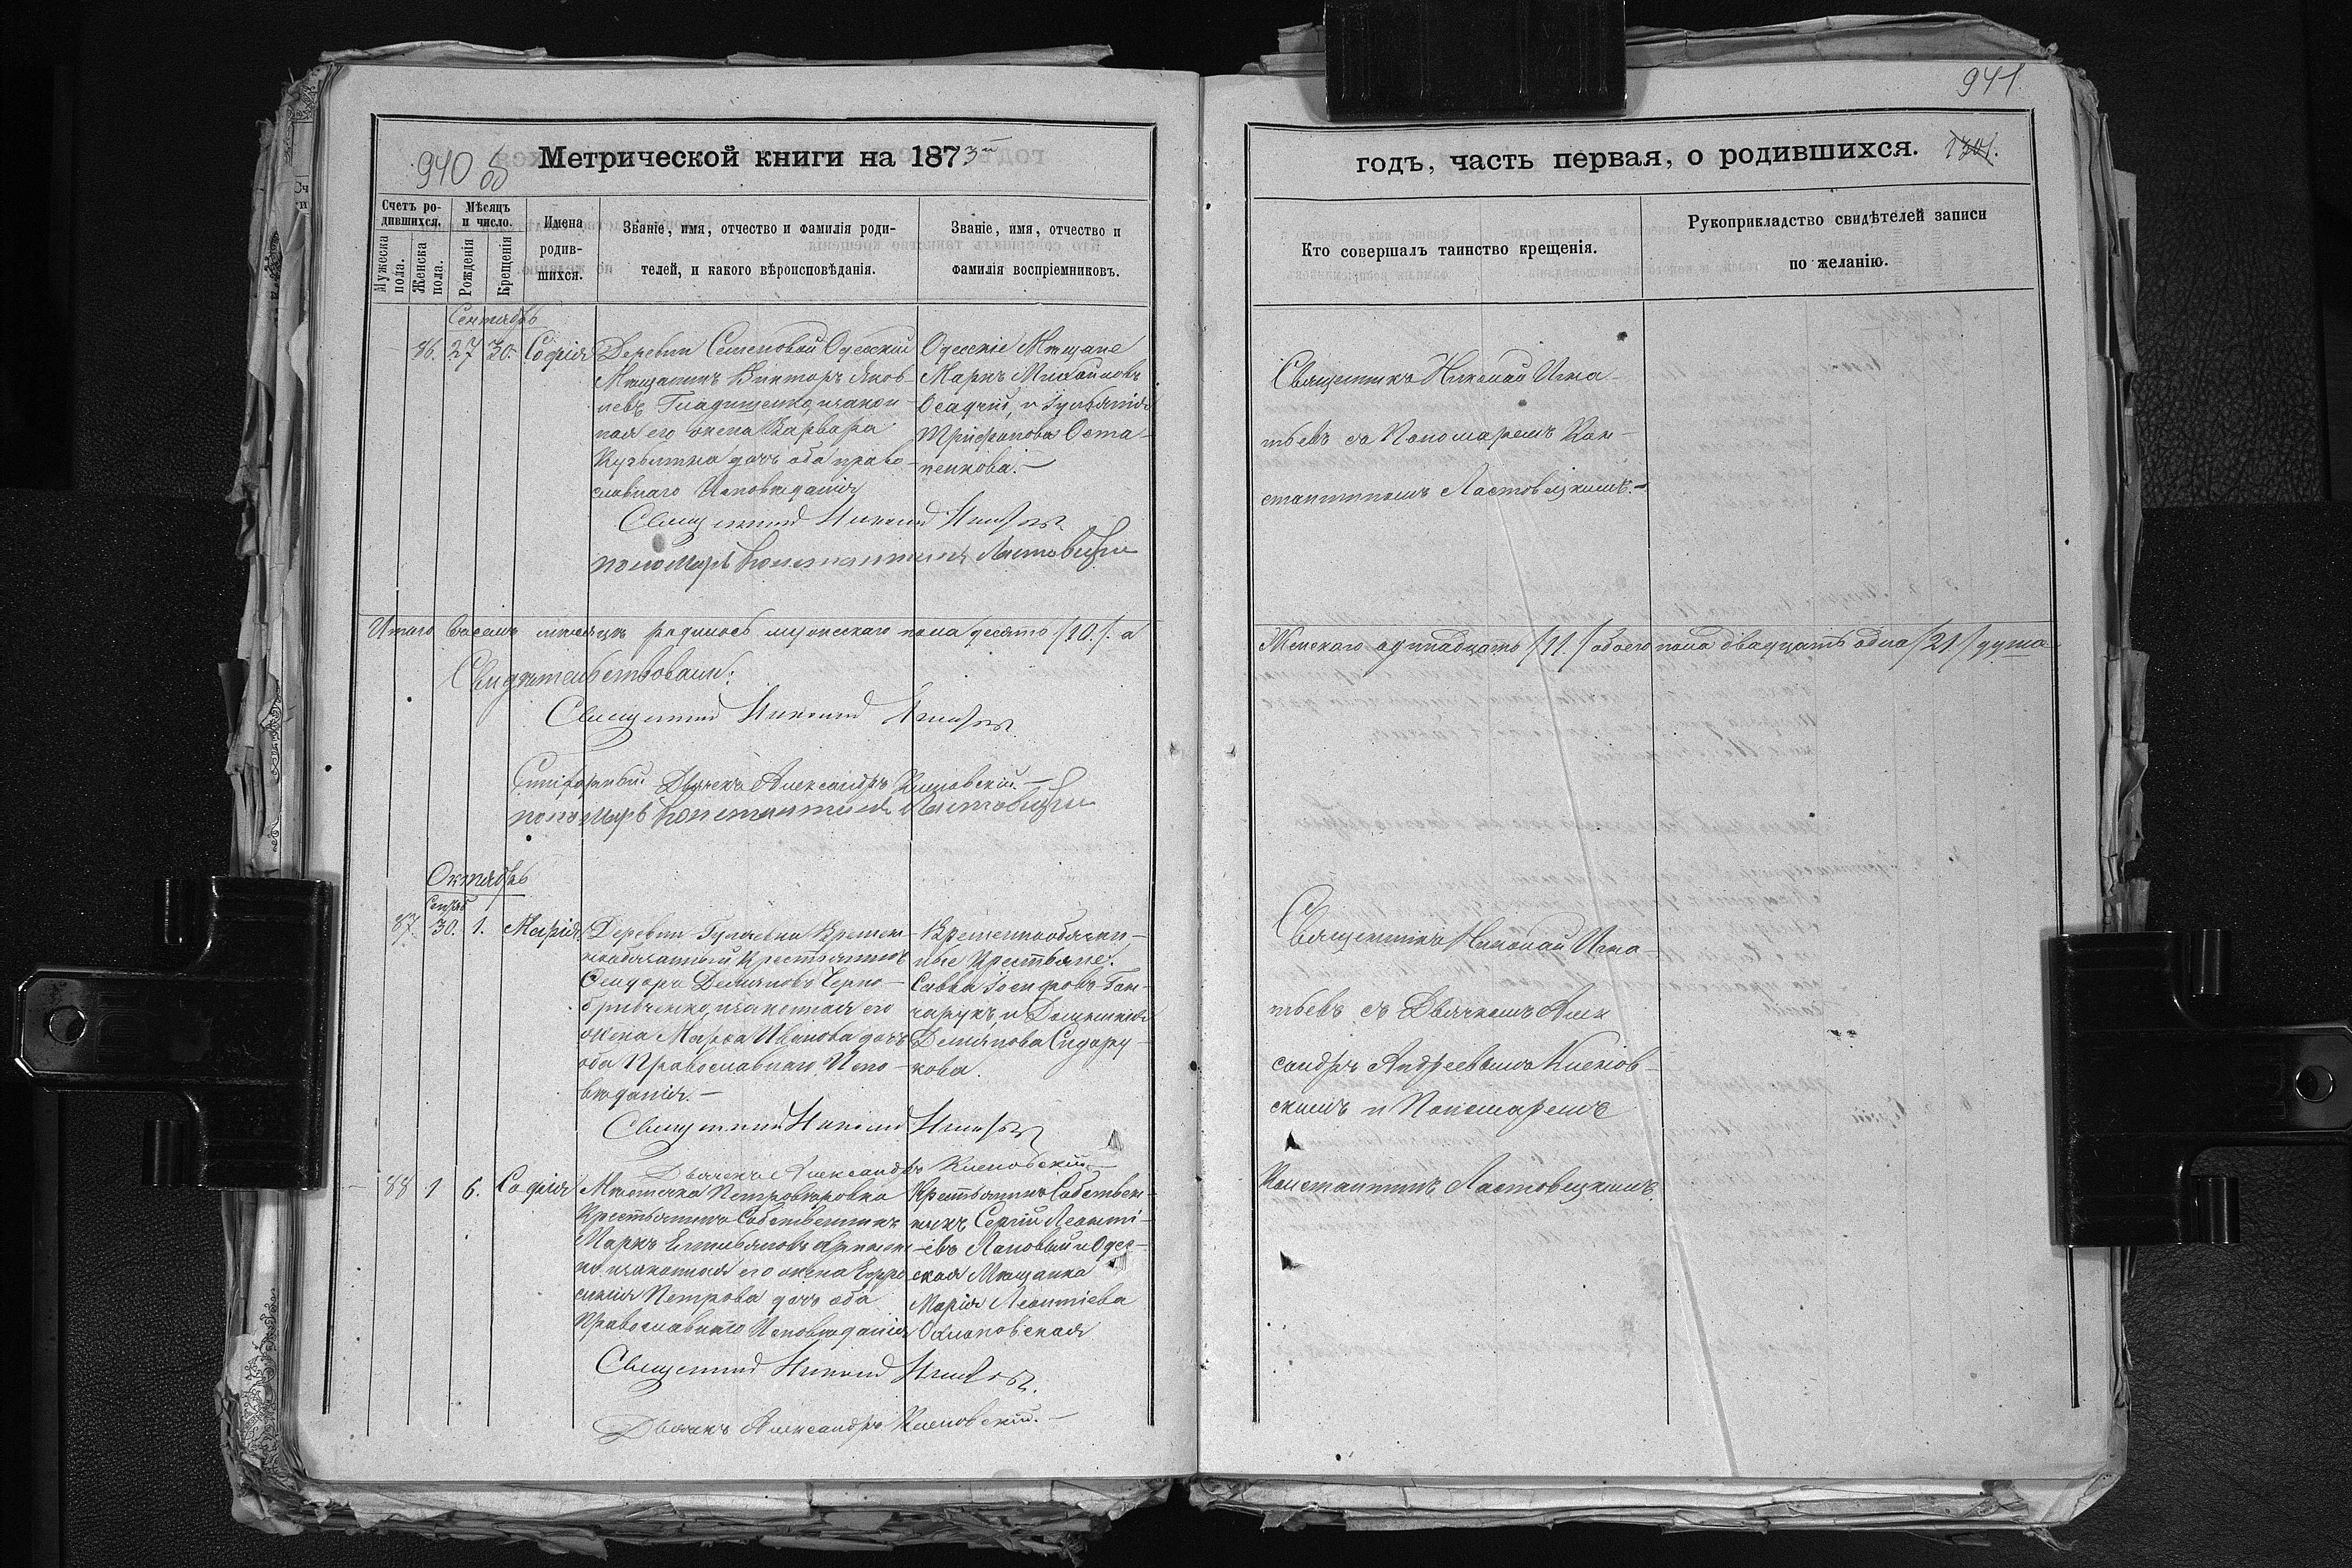 940 об
Метрической книги на 1873й
Счетъ ро-
дившихся.
Мѣсяцъ
и число.
Мужеска
пола.
Женска
пола.
Рожденія
Крещенія
Имена
родив-
шихся.
Званіе, имя, отчество и фамилія роди-
телей, и какого вѣроисповѣданія.
Званіе, имя, отчество и
фамилія воспріемниковъ.
Сентябрь
86. 27 30. Софія
Деревни Семеновой Одесскій
Мѣщанинъ Викторъ Яков-
левъ Гладищенко, и закон-
ная его жена Варвара
дочь оба право-
славнаго Исповѣданія
Одесскіе Мѣщане
Маркъ Михайловъ
Осадчій, и
Трифонова Оста-
пенкова.
Священникъ Николай Игнатьевъ
пономарь Константинъ Ластовецкій
Итого въ семъ мѣсяцѣ родилось мужескаго пола десять /10./ а
Свидѣтельствовали:
Священникъ Николай Игнатьевъ
Дьячекъ Александръ Кисловскій.
пономарь Константинъ Ластовецкій
Октябрь
Сентяб
87. 30. 1. Марія
Деревни Гуляевки Времен-
нообязанный Крестьянинъ
Сидоръ Демьяновъ Черно-
бривченко, и законная его
жена Марѳа Иванова дочь
оба Православнаго Испо-
вѣданія.
Временнообязан-
ные Крестьяне.
Савва Іосифовъ Гон-
чарукъ, и Домникія
Деміянова Сидору-
кова.
Священникъ Николай Игнатьевъ
Дьячекъ Александръ Кисловскій
88 1 6. Софія
Мѣстечка Петровѣровка
Крестьянинъ Собственникъ
Маркъ Емельяновъ
законная его жена Евфро
синія Петрова дочь оба
Православнаго Исповѣданія
Крестьянинъ Собствен-
никъ Сергій Леонті-
евъ Лановый и Одес-
ская Мѣщанка
Марія Леонтіева
Священникъ Николай Игнатьевъ.
Дьячекъ Александръ Кисловскій.
941
годъ, часть первая, о родившихся. 1301.
Кто совершалъ таинство крещенія.
Рукоприкладство свидѣтелей записи
по желанію.
Священникъ Николай Игна-
тьевъ съ Пономаремъ Кон-
стантиномъ Ластовецкимъ.
Женскаго одинадцать /11./ обоего пола двадцать одна /21/ душа
Священникъ Николай Игна-
тьевъ съ Дьячкомъ Алек
сандръ Андреевымъ Кислов-
скимъ и Пономаремъ
Константинъ Ластовецкимъ.